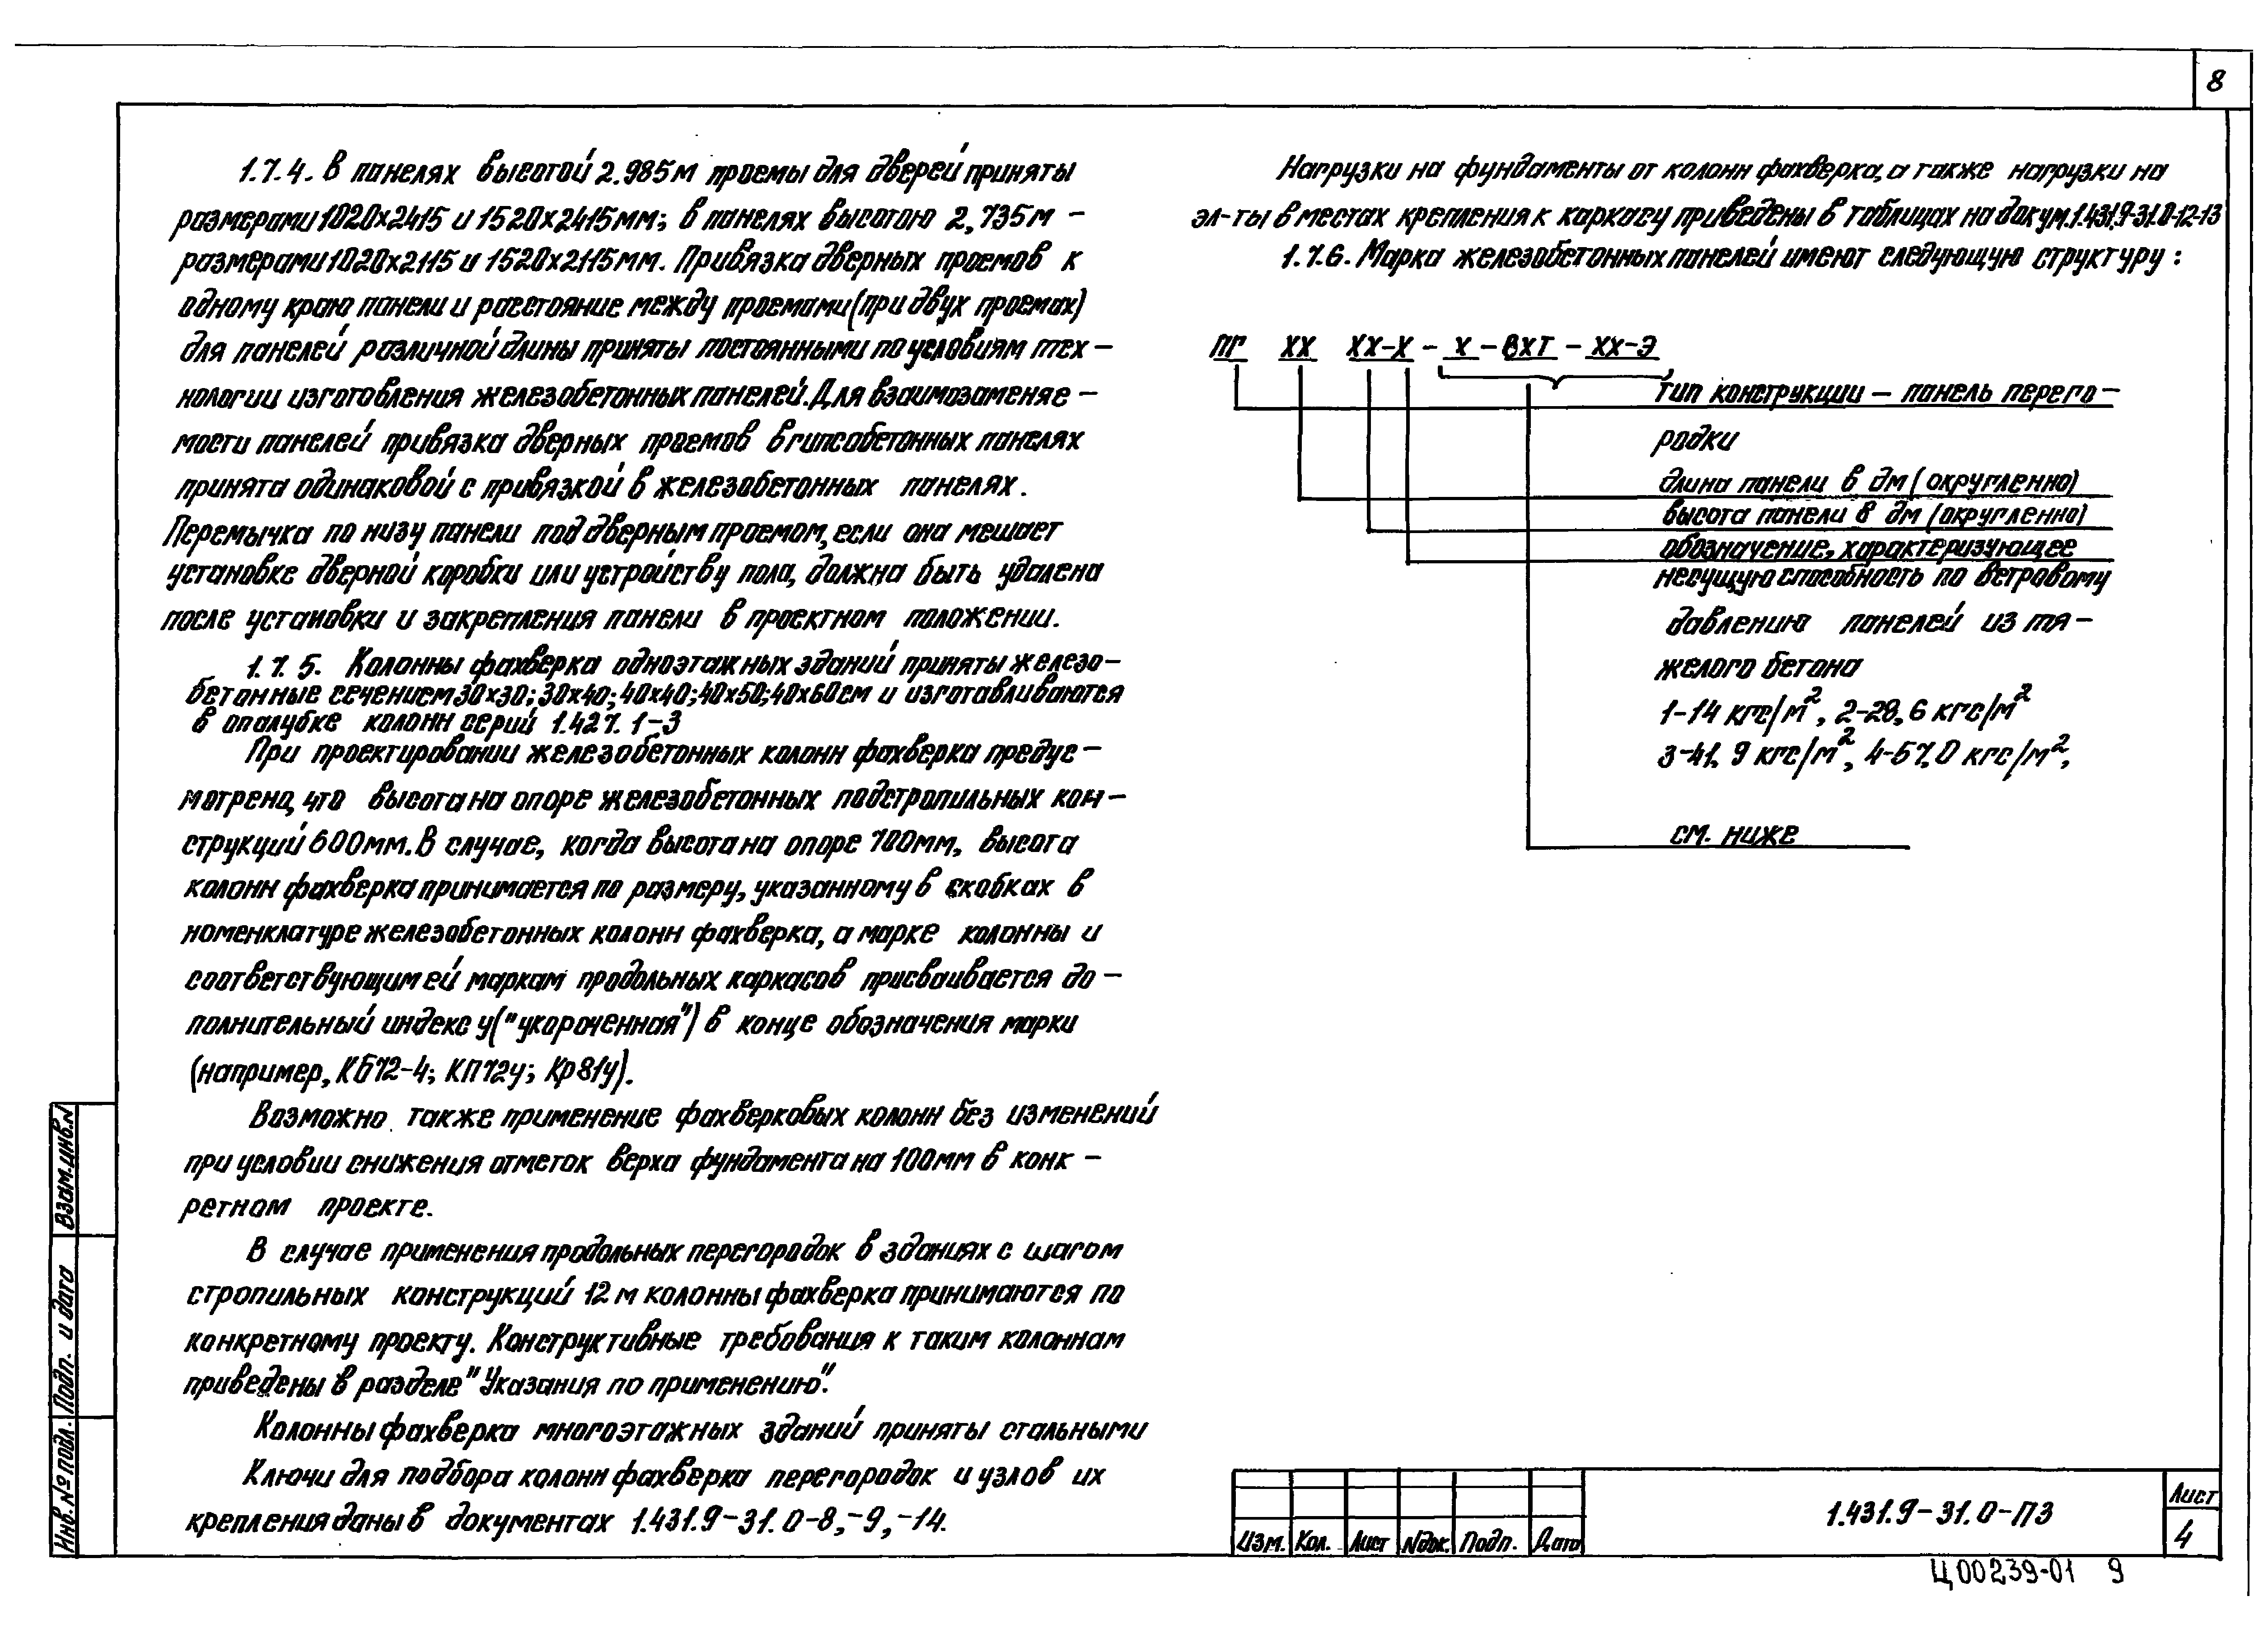 8
1.7.4. В панелях высотой 2.985м проемы для дверей приняты
размерами 1020х2415 и 1520х2415мм; в панелях высотою 2,735м –
размерами 1020х2115 и 1520х2115мм. Привязка дверных проемов к
одному краю панели и расстояние между проемами (при двух проемах)
для панелей различной длины приняты постоянными по условиям тех –
нологии изготовления железобетонных панелей. Для взаимозаменяе –
мости панелей привязка дверных проемов в гипсобетонных панелях
принята одинаковой с привязкой в железобетонных панелях.
Перемычка по низу панели под дверным проемом, если она мешает
установке дверной коробки или устройству пола, должна быть удалена
после установки и закрепления панели в проектном положении.
1.7.5. Колонны фахверка одноэтажных зданий приняты железо–
бетонные сечением 30х30; 30х40; 40х40; 40х50; 40х60см и изготавливаются
в опалубке колонн серий 1.427.1–3
При проектировании железобетонных колонн фахверка предус –
мотрено, что высота на опоре железобетонных подстропильных кон –
струкций 600мм. В случае, когда высота на опоре 700мм, высота
колонн фахверка принимается по размеру, указанному в скобках в
номенклатуре железобетонных колонн фахверка, а марке колонны и
соответствующим ей маркам продольных каркасов присваивается до –
полнительный индекс у("укороченная") в конце обозначения марки
(например, КБ72-4; КП72у; Кр81у).
Возможно также применение фахверковых колонн без изменений
при условии снижения отметок верха фундамента на 100мм в конк –
ретном проекте.
В случае применения продольных перегородок в зданиях с шагом
стропильных конструкций 12м колонны фахверка принимаются по
конкретному проекту. Конструктивные требования к таким колоннам
приведены в разделе "Указания по применению".
Колонны фахверка многоэтажных зданий приняты стальными
Ключи для подбора колонн фахверка перегородок и узлов их
крепления даны в документах 1.431.9–31.0-8,–9,–14.
Нагрузки на фундаменты от колонн фахверка, а также нагрузки на
эл-ты в местах крепления к каркасу приведены в таблицах на докум.1.431.9-31.0-12-13
1.7.6. Марка железобетонных панелей имеют следующую структуру :
ПГ ХХ ХХ-Х – Х – ВХТ – ХХ-Э
тип конструкции – панель перего –
родки
длина панели в дм (округленно)
высота панели в дм (округленно)
обозначение, характеризующее
несущую способность по ветровому
давлению панелей из тя –
желого бетона
1-14 кгс/м², 2-28,6 кгс/м²
3-41,9 кгс/м², 4-57,0 кгс/м²,
см. ниже
Взам.инв.N
Подп. и дата
Инв.№ подл.
Изм. Кол. Лист Nдок. Подп. Дата
1.431.9-31.0-ПЗ
Лист
4
Ц00239-01 9